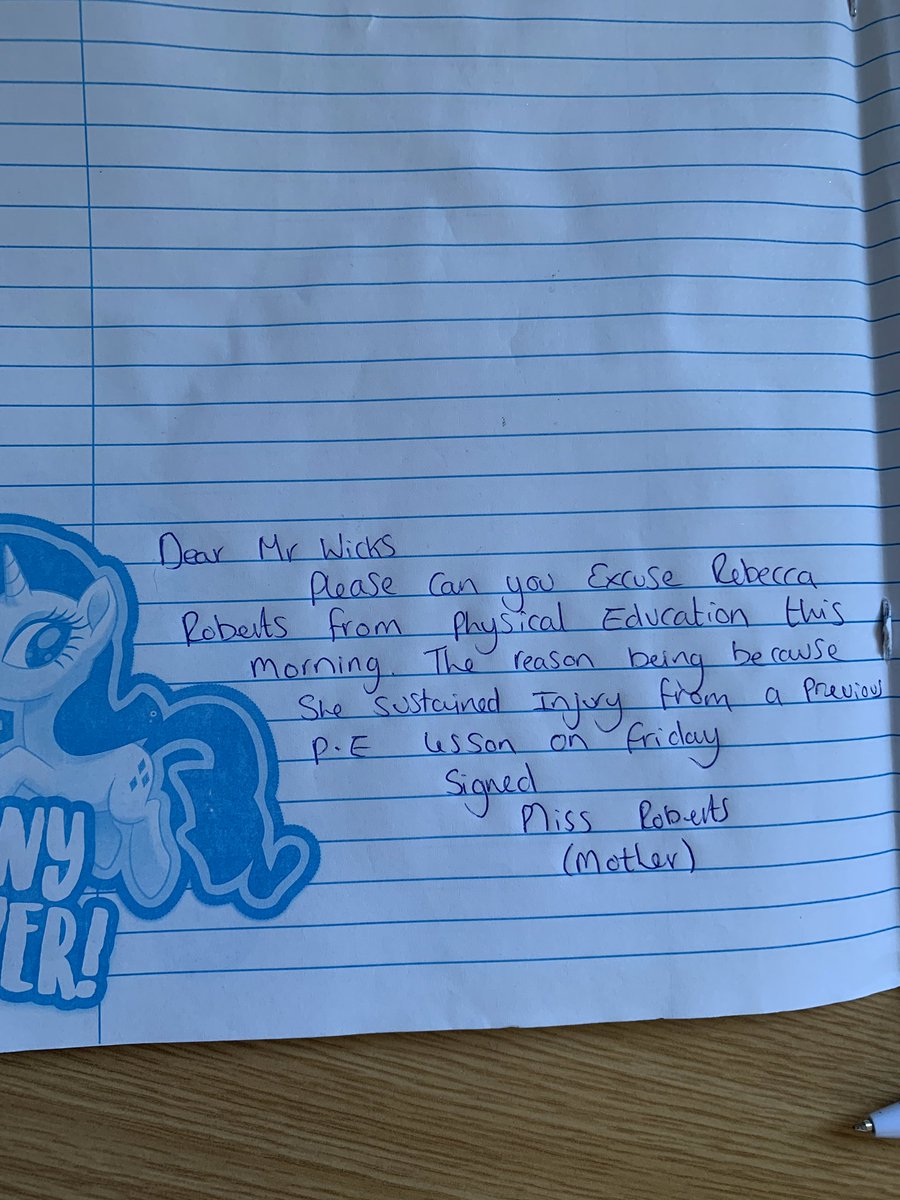 Dear Mr Wicks
Please Can you Excuse Rebecca
Roberts from Physical Education this
morning. The reason being because
She sustained Injury from a Previous
P.E lesson on friday
Signed
Miss Roberts
(Mother)
NY
ER!